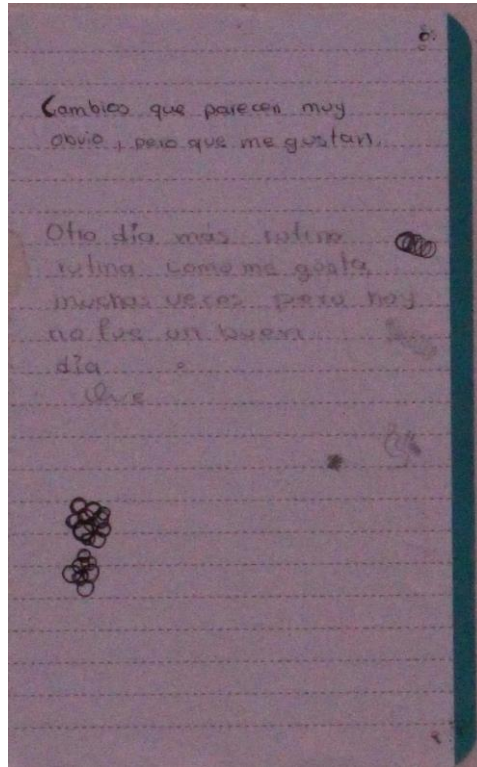 Cambios que parecen muy
obvio, pero que me gustan.
Otro día más rutina
rutina como me gusta
muchas veces pero hoy
no fue un buen
día
Que